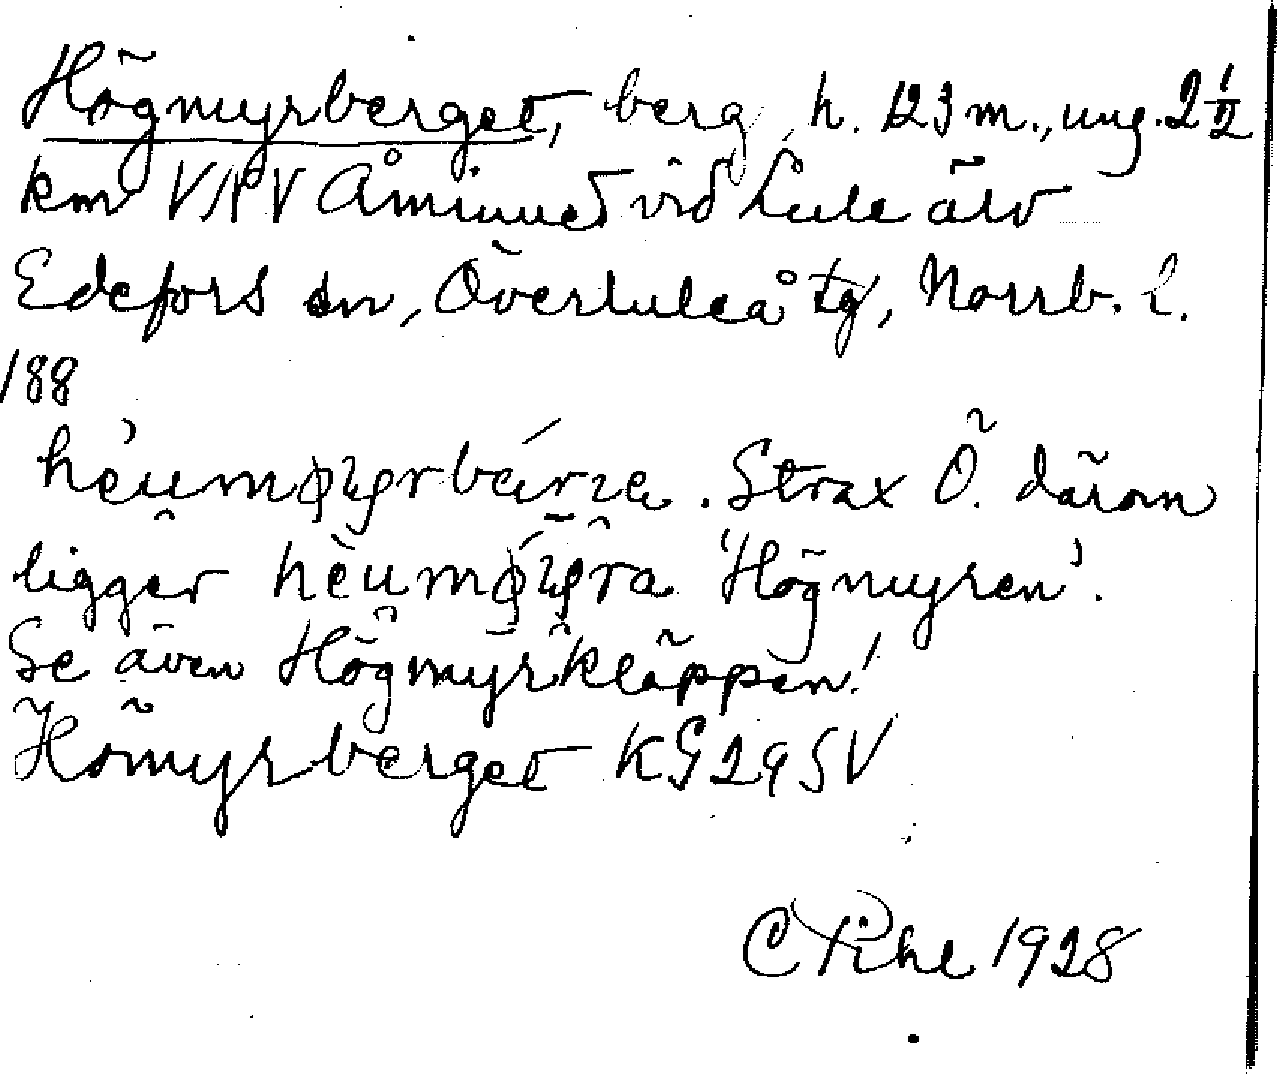 Högmyrberget, berg, h. 123 m., ung. 2½
km VNV Åminnet vid Lule älv
Edefors sn, Överluleå tg, Norrb. l.
188
Strax Ö. därom
ligger 'Högmyren'.
Se även Högmyrkläppen!
Hömyrberget KG 29 SV
C Pihl 1928